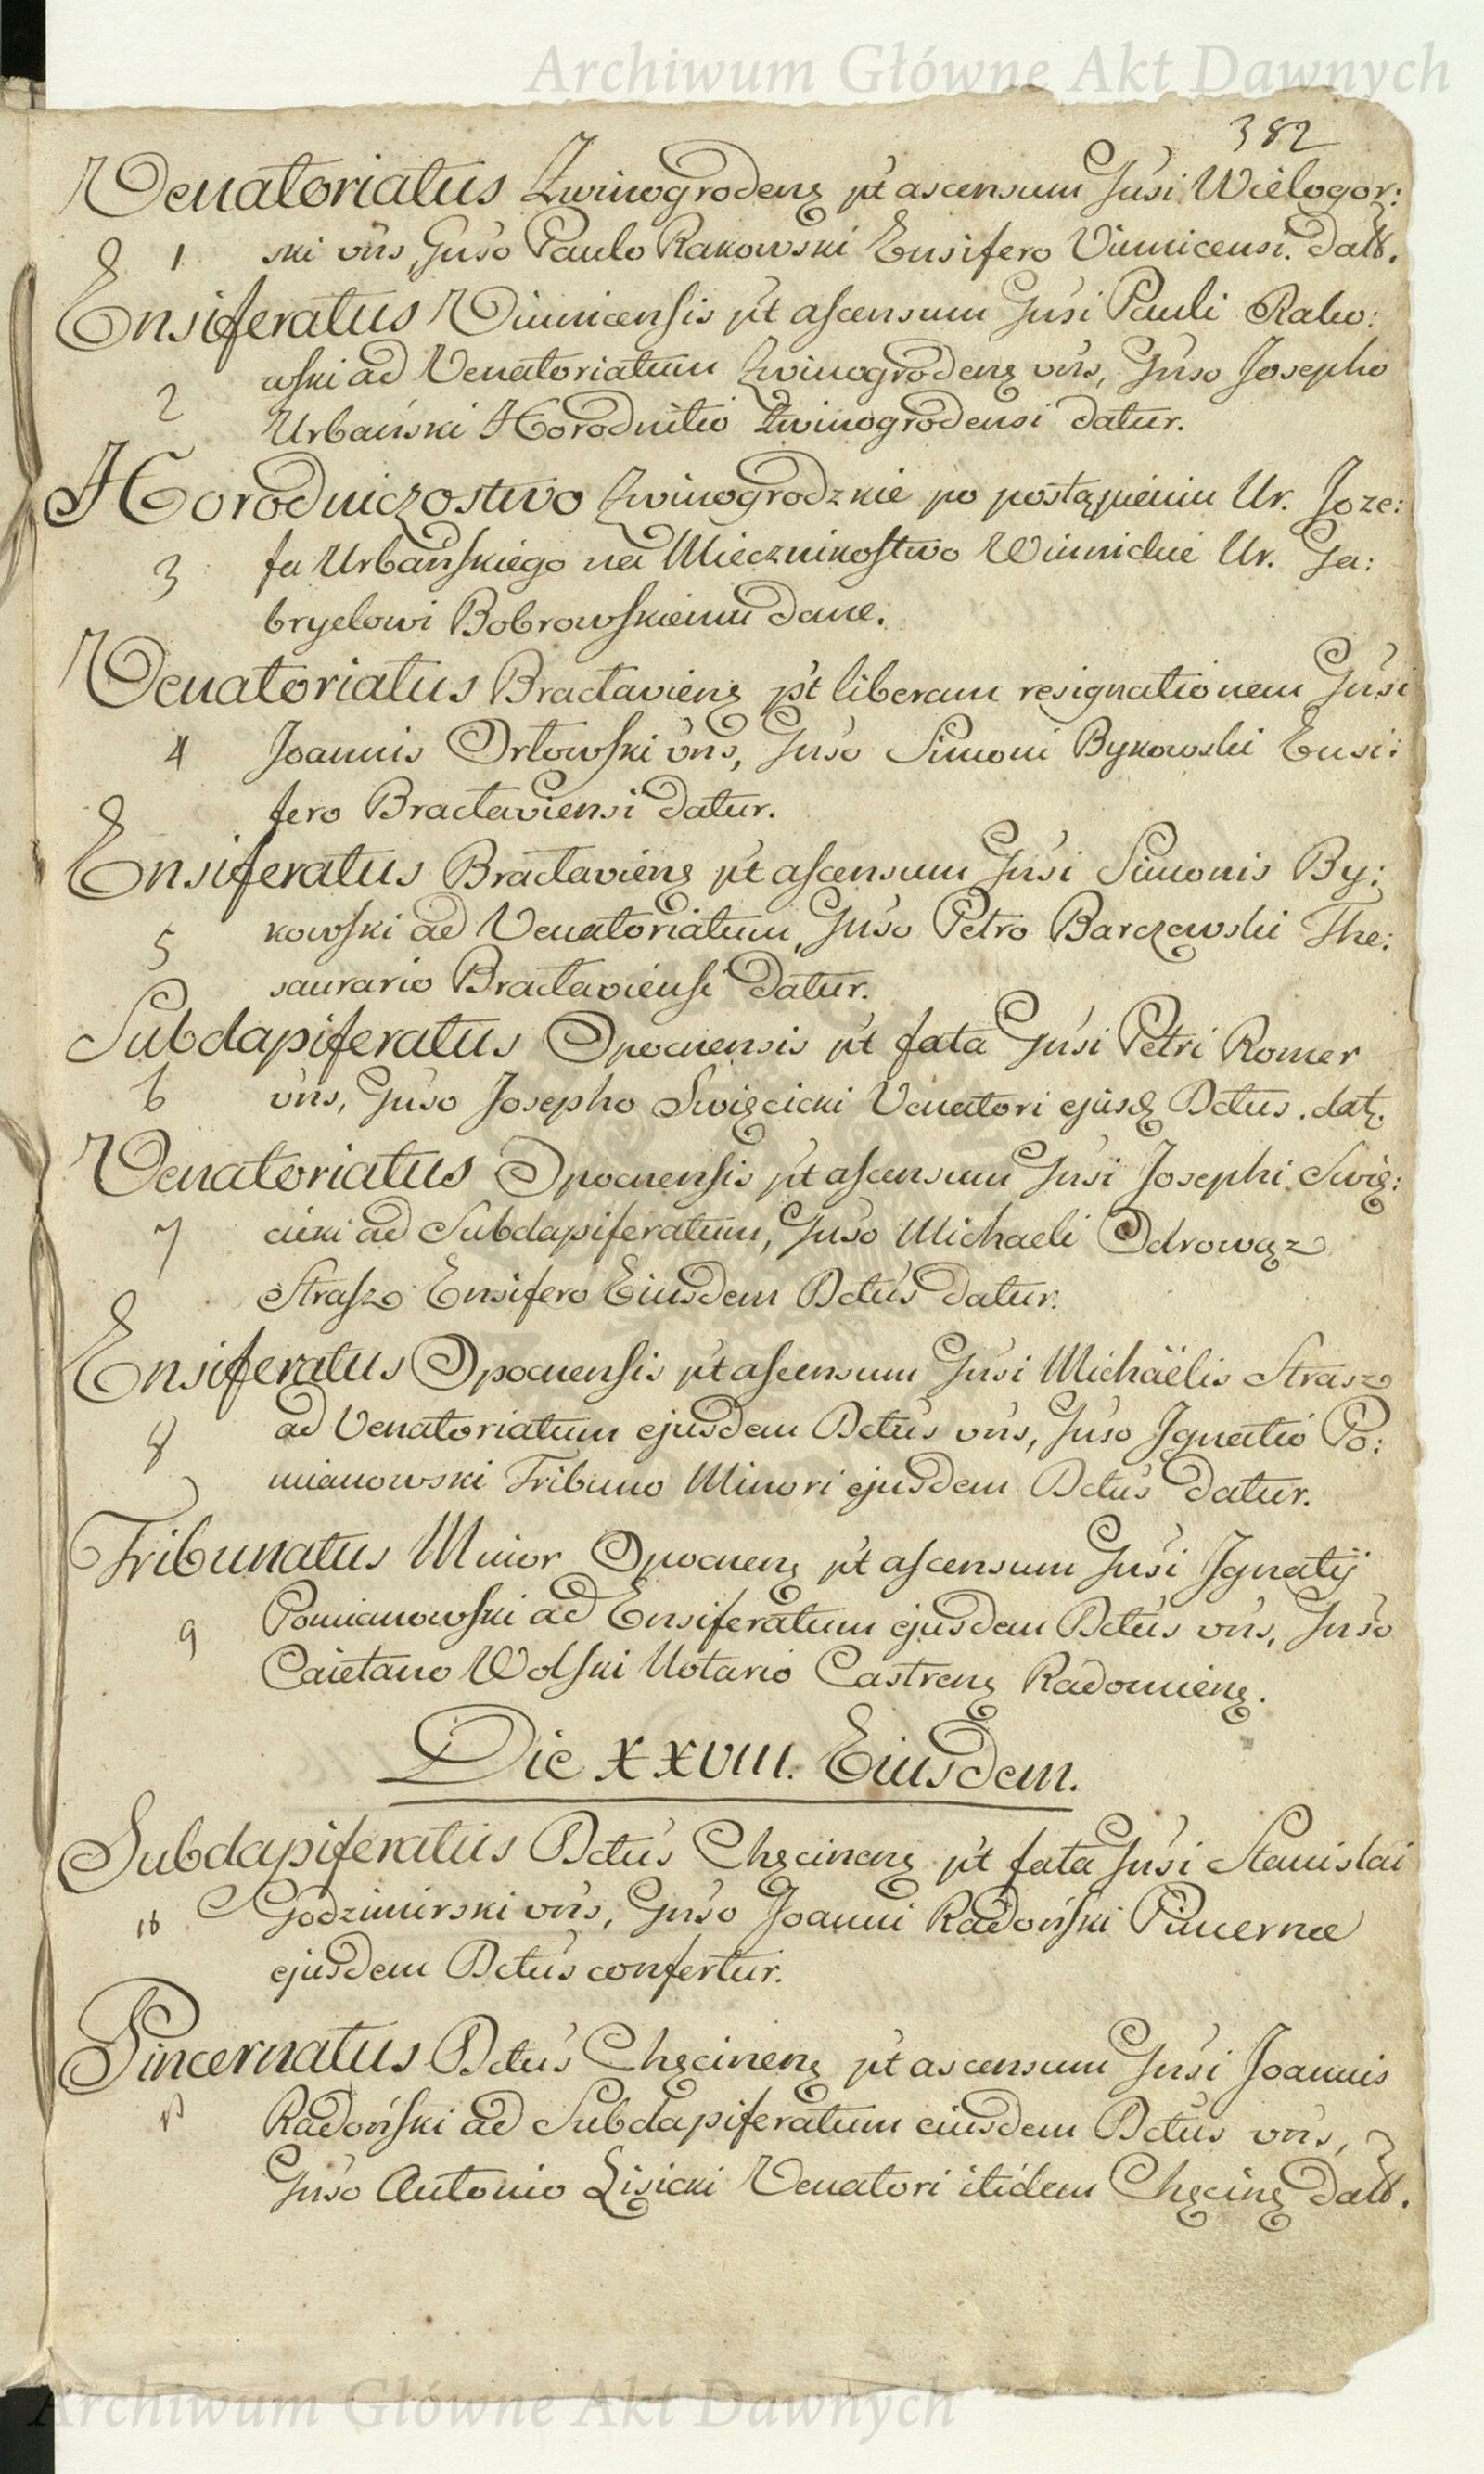 Archiwum Główne Akt Dawnych
382
Venatoriatus Zwinogrodens pt ascensum Gnsi Wielogor:
1 ski vns, Gnso Paulo Rakowski Ensifero Vinnicensi. datt.
Ensiferatus Vinnicensis pt ascensum Gnsi Pauli Rako:
wski ad Venatoriatum Zwinogrodens vns, Gnso Josepho
2 Urbański Horodnitio Zwinogrodensi datur.
Horodniczostwo Zwinogrodzkie po postąpieniu Ur. Joze:
3 fa Urbańskiego na Miecznikostwo Winnickie Ur. Ga:
bryelowi Bobrowskiemu dane.
Venatoriatus Braclaviens pt liberam resignationem Gnsi
4 Joannis Orłowski vns, Gnso Simoni Bykowski Ensi:
fero Braclaviensi datur.
Ensiferatus Braclaviens pt ascensum Gnsi Simonis By:
5 kowski ad Venatoriatum, Gnso Petro Barczewski The:
saurario Braclaviensi datur.
Subdapiferatus Opocnensis pt fata Gnsi Petri Romer
6 vns, Gnso Josepho Swięcicki Venatori ejusd Dctus. dat.
Venatoriatus Opocnensis pt ascensum Gnsi Josephi Swię:
7 cicki ad Subdapiferatum, Gnso Michaeli Odrowąz
Strasz Ensifero Eiusdem Dctus datur.
Ensiferatus Opocnensis pt ascensum Gnsi Michaëlis Strasz
8 ad Venatoriatum ejusdem Dctus vns, Gnso Ignatio Po:
mianowski Tribuno Minori ejusdem Dctus datur.
Tribunatus Minor Opocnens pt ascensum Gnsi Ignatij
9 Pomianowski ad Ensiferatum ejusdem Dctus vns, Gnso
Caietano Wolski Notario Castrens Radomiens.
Die XXVIII. Eiusdem.
Subdapiferatus Dctus Chęcinens pt fata Gnsi Stanislai
10 Godzimirski vns, Gnso Joanni Radoński Pincernae
ejusdem Dctus confertur.
Pincernatus Dctus Chęcinens pt ascensum Gnsi Joannis
11 Radoński ad Subdapiferatum eiusdem Dctus vns,
Gnso Antonio Lisicki Venatori itidem Chęcins datt.
Archiwum Główne Akt Dawnych